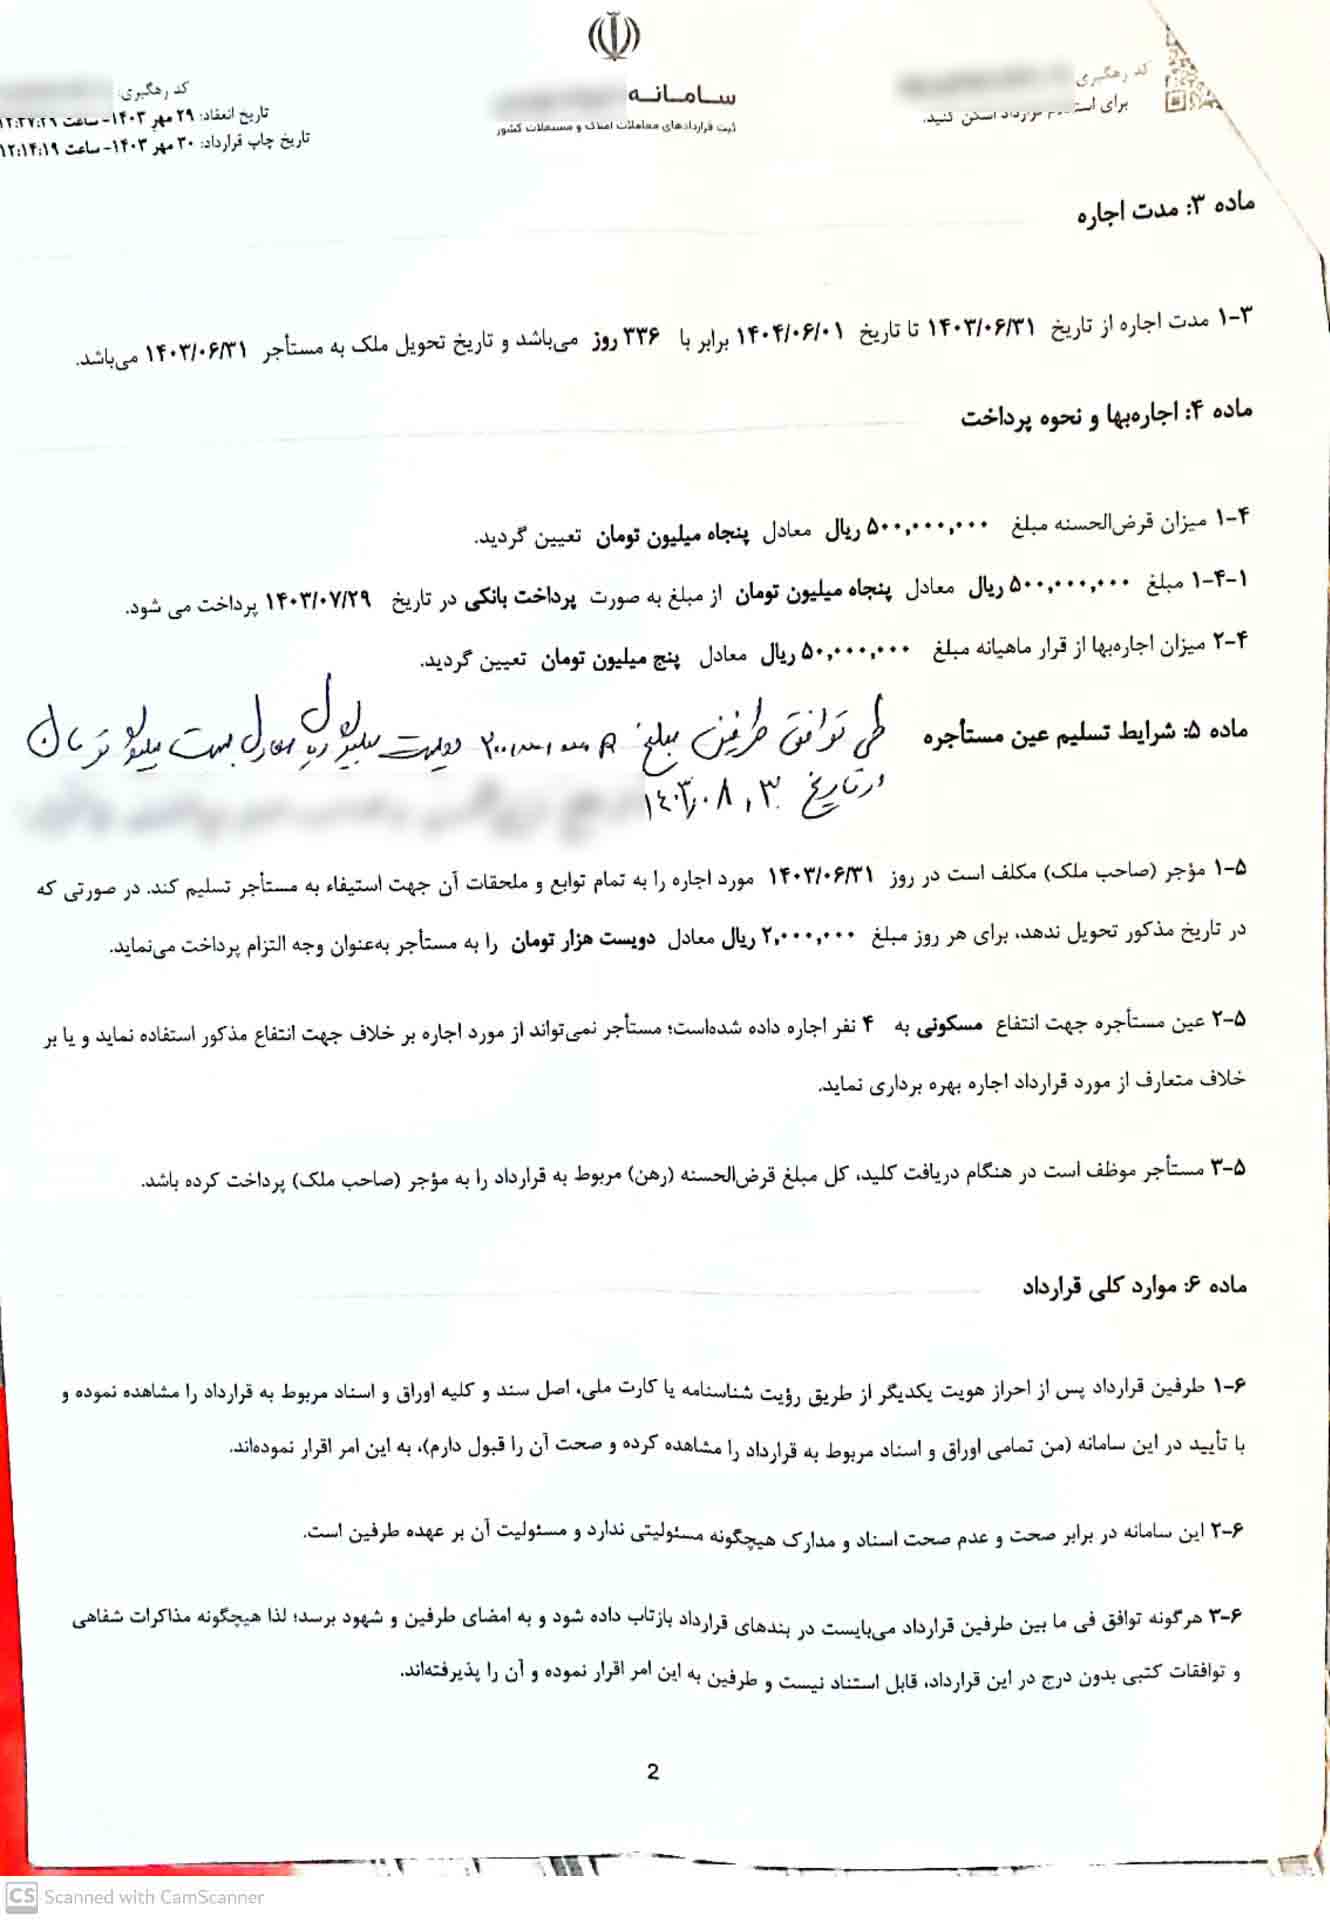 کد رهگیری:
برای استعلام قرارداد اسکن کنید.
سامانه
ثبت قراردادهای معاملات املاک و مستغلات کشور
کد رهگیری:
تاریخ انعقاد: ۲۹ مهر ۱۴۰۳- ساعت ۱۲:۲۷:۲۹
تاریخ چاپ قرارداد: ۳۰ مهر ۱۴۰۳- ساعت ۱۲:۱۴:۱۹
ماده ۳: مدت اجاره
۳-۱ مدت اجاره از تاریخ ۱۴۰۳/۰۶/۳۱ تا تاریخ ۱۴۰۴/۰۶/۰۱ برابر با ۳۳۶ روز می‌باشد و تاریخ تحویل ملک به مستأجر ۱۴۰۳/۰۶/۳۱ می‌باشد.
ماده ۴: اجاره‌بها و نحوه پرداخت
۴-۱ میزان قرض‌الحسنه مبلغ ۵۰۰,۰۰۰,۰۰۰ ریال معادل پنجاه میلیون تومان تعیین گردید.
۱-۴-۱ مبلغ ۵۰۰,۰۰۰,۰۰۰ ریال معادل پنجاه میلیون تومان از مبلغ به صورت پرداخت بانکی در تاریخ ۱۴۰۳/۰۷/۲۹ پرداخت می شود.
۴-۲ میزان اجاره‌بها از قرار ماهیانه مبلغ ۵۰,۰۰۰,۰۰۰ ریال معادل پنج میلیون تومان تعیین گردید.
ماده ۵: شرایط تسلیم عین مستأجره
طی توافق طرفین مبلغ ۲۰۰,۰۰۰,۰۰۰ دویست میلیون ریال معادل بیست میلیون تومان
در تاریخ ۱۴۰۳,۰۸,۳۰
۵-۱ مؤجر (صاحب ملک) مکلف است در روز ۱۴۰۳/۰۶/۳۱ مورد اجاره را به تمام توابع و ملحقات آن جهت استیفاء به مستأجر تسلیم کند. در صورتی که
در تاریخ مذکور تحویل ندهد، برای هر روز مبلغ ۲,۰۰۰,۰۰۰ ریال معادل دویست هزار تومان را به مستأجر به‌عنوان وجه التزام پرداخت می‌نماید.
۵-۲ عین مستأجره جهت انتفاع مسکونی به ۴ نفر اجاره داده شده‌است؛ مستأجر نمی‌تواند از مورد اجاره بر خلاف جهت انتفاع مذکور استفاده نماید و یا بر
خلاف متعارف از مورد قرارداد اجاره بهره برداری نماید.
۵-۳ مستأجر موظف است در هنگام دریافت کلید، کل مبلغ قرض‌الحسنه (رهن) مربوط به قرارداد را به مؤجر (صاحب ملک) پرداخت کرده باشد.
ماده ۶: موارد کلی قرارداد
۶-۱ طرفین قرارداد پس از احراز هویت یکدیگر از طریق رؤیت شناسنامه یا کارت ملی، اصل سند و کلیه اوراق و اسناد مربوط به قرارداد را مشاهده نموده و
با تأیید در این سامانه (من تمامی اوراق و اسناد مربوط به قرارداد را مشاهده کرده و صحت آن را قبول دارم)، به این امر اقرار نموده‌اند.
۶-۲ این سامانه در برابر صحت و عدم صحت اسناد و مدارک هیچگونه مسئولیتی ندارد و مسئولیت آن بر عهده طرفین است.
۶-۳ هرگونه توافق فی ما بین طرفین قرارداد می‌بایست در بندهای قرارداد بازتاب داده شود و به امضای طرفین و شهود برسد؛ لذا هیچگونه مذاکرات شفاهی
و توافقات کتبی بدون درج در این قرارداد، قابل استناد نیست و طرفین به این امر اقرار نموده و آن را پذیرفته‌اند.
2
CS Scanned with CamScanner